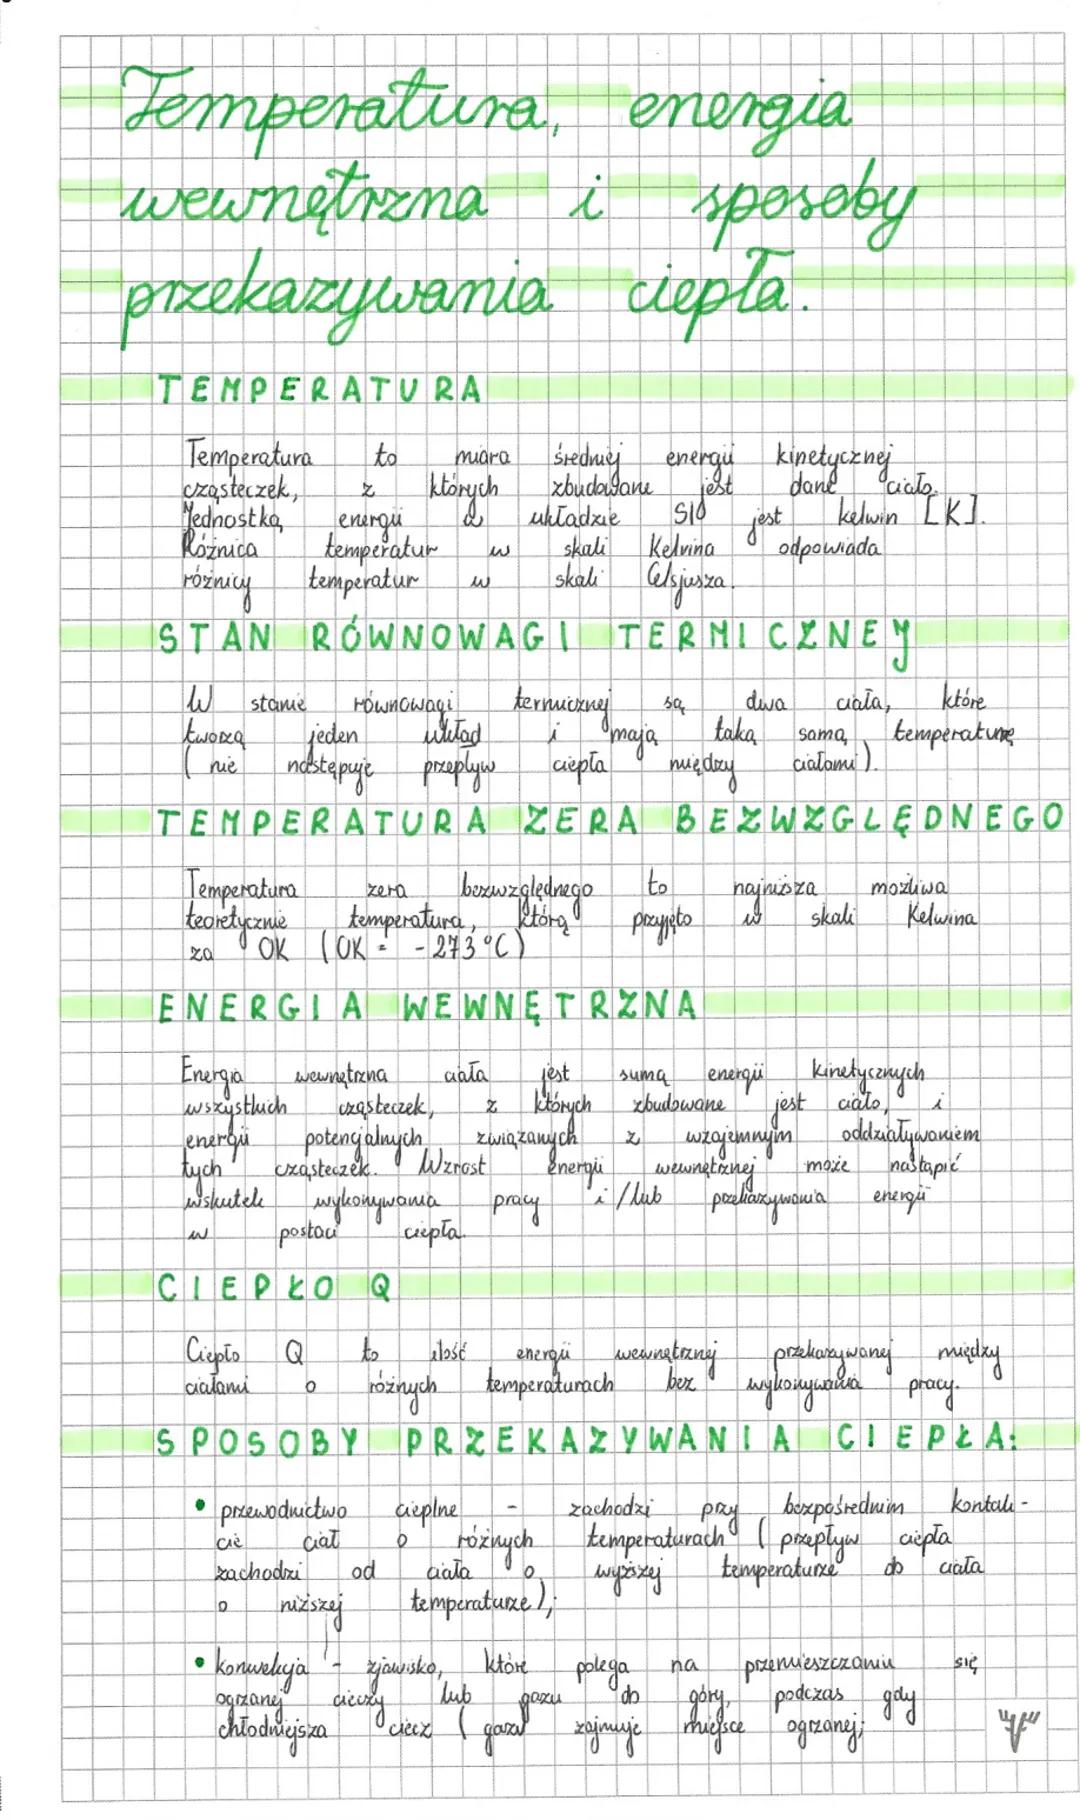 Temperatura, energia
wewnętrzna i sposoby
przekazywania ciepła.
TEMPERATURA
Temperatura to miara średniej energii kinetycznej
cząsteczek, z których zbudowane jest dane ciało.
Jednostką energii w układzie SI jest kelwin [K].
Różnica temperatur w skali Kelvina odpowiada
różnicy temperatur w skali Celsjusza.
STAN RÓWNOWAGI TERMICZNEJ
W stanie równowagi termicznej są dwa ciała, które
tworzą jeden układ i mają taką samą temperaturę
(nie następuje przepływ ciepła między ciałami).
TEMPERATURA ZERA BEZWZGLĘDNEGO
Temperatura zera bezwzględnego to najniższa możliwa
teoretycznie temperatura, którą przyjęto w skali Kelwina
za 0K (0K = -273°C)
ENERGIA WEWNĘTRZNA
Energia wewnętrzna ciała jest sumą energii kinetycznych
wszystkich cząsteczek, z których zbudowane jest ciało, i
energii potencjalnych związanych z wzajemnym oddziaływaniem
tych cząsteczek. Wzrost energii wewnętrznej może nastąpić
wskutek wykonywania pracy i/lub przekazywania energii
w postaci ciepła.
CIEPŁO Q
Ciepło Q to ilość energii wewnętrznej przekazywanej między
ciałami o różnych temperaturach bez wykonywania pracy.
SPOSOBY PRZEKAZYWANIA CIEPŁA:
• przewodnictwo cieplne - zachodzi przy bezpośrednim kontak-
cie ciał o różnych temperaturach (przepływ ciepła
zachodzi od ciała o wyższej temperaturze do ciała
o niższej temperaturze);
• konwekcja - zjawisko, które polega na przemieszczaniu się
ogrzanej cieczy lub gazu do góry, podczas gdy
chłodniejsza ciecz (gaz) zajmuje miejsce ogrzanej;